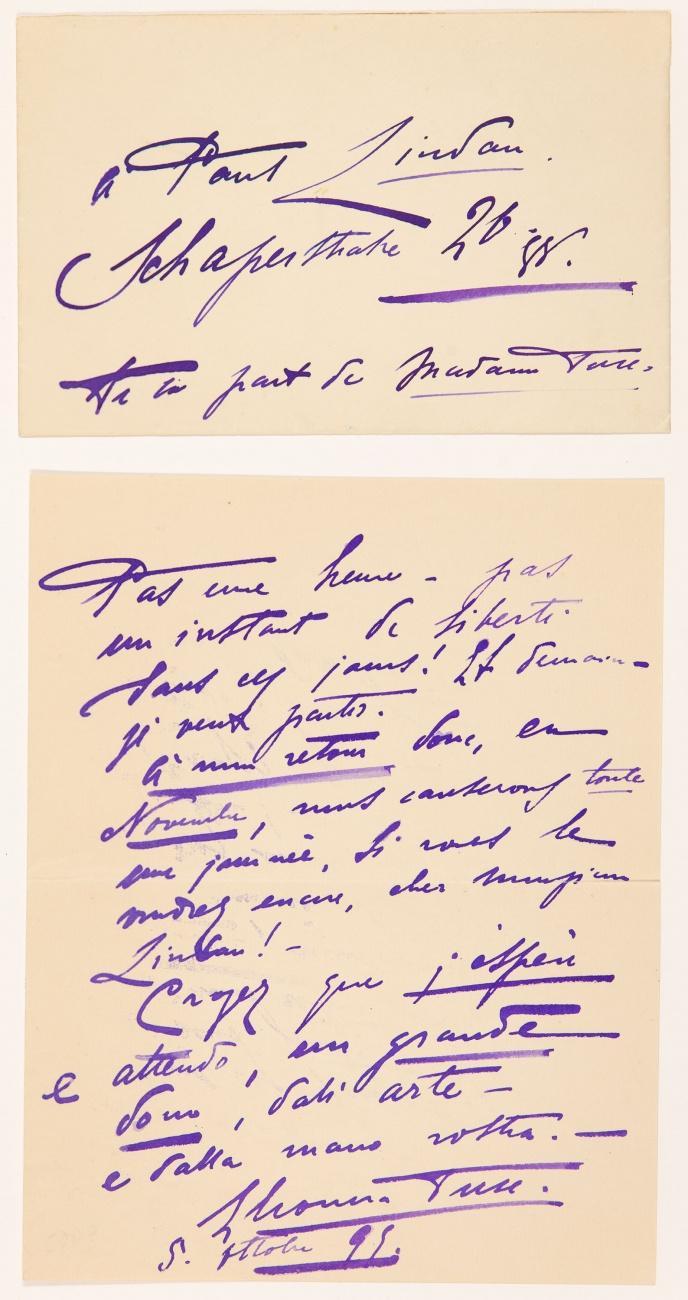 à Paul Lindau.
Schaperstrasse 26
De la part de Madame Duse.
Pas une heure - pas
un instant de liberté
dans ces jours! Et demain -
je veux partir.
À mon retour donc, en
Novembre, nous causerons toute
une journée, si vous le
voudrez encore, cher Monsieur
Lindau! -
Croyez que j'espère
e attendo, un grande
dono, dall'arte -
e dalla mano vostra. -
Eleonora Duse.
5. Ottobre 95.